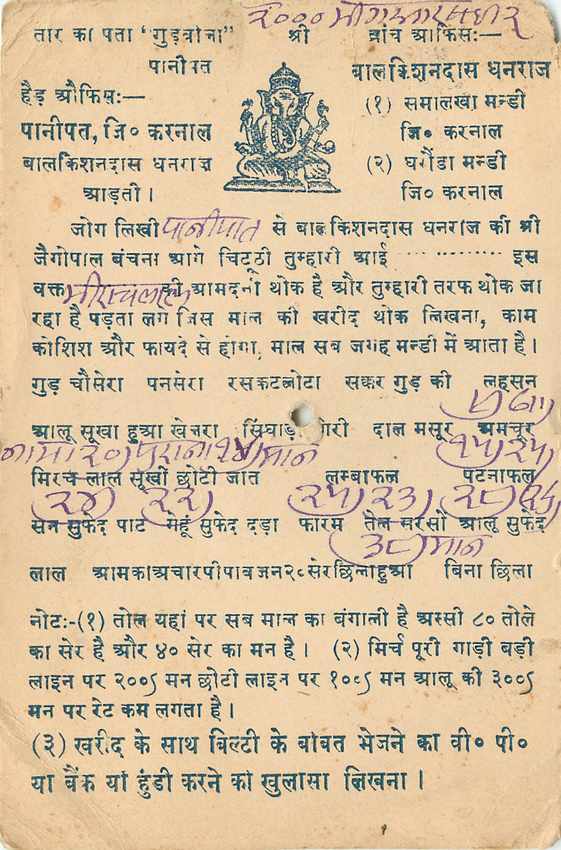 तार का पता "गुड़वाला" श्री ब्रांच ऑफिस:—
पानीपत बालकिशनदास धनराज
हैड औफिस:— (१) समालखा मन्डी
पानीपत, जि० करनाल जि० करनाल
बालकिशनदास धनराज (२) घरौंडा मन्डी
आड़ती। जि० करनाल
जोग लिखी पानीपात से बालकिशनदास धनराज की श्री
जैगोपाल बंचना आगे चिट्ठी तुम्हारी आई ................ इस
वक्त की आमदनी थोक है और तुम्हारी तरफ थोक जा
रहा है पड़ता लगे जिस माल की खरीद थोक लिखना, काम
कोशिश और फायदे से होगा, माल सब जगह मन्डी में आता है।
गुड़ चौसेरा पनसेरा रसकटलोटा सक्कर गुड़ की लहसन
आलू सूखा हुआ खेजरा सिंघाड़ा गोरी दाल मसूर अमचूर
१५) २५)
मिरच लाल सूखी छोटी जात लम्बाफल पटनाफल
२४) २२) २५) २३)
सन सुफेद पाट गेहूं सुफेद दड़ा फारम तेल सरसों आलू सुफेद
३८) मान
लाल आमका अचार पीपा वजन २८ सेर छिला हुआ बिना छिला
नोट:-(१) तोल यहां पर सब माल का बंगाली है अस्सी ८० तोले
का सेर है और ४० सेर का मन है। (२) मिर्च पूरी गाड़ी बड़ी
लाइन पर २००ऽ मन छोटी लाइन पर १०८ऽ मन आलू की ३००ऽ
मन पर रेट कम लगता है।
(३) खरीद के साथ बिल्टी के बाबत भेजने का वी० पी०
या बैंक या हुंडी करने को खुलासा लिखना।